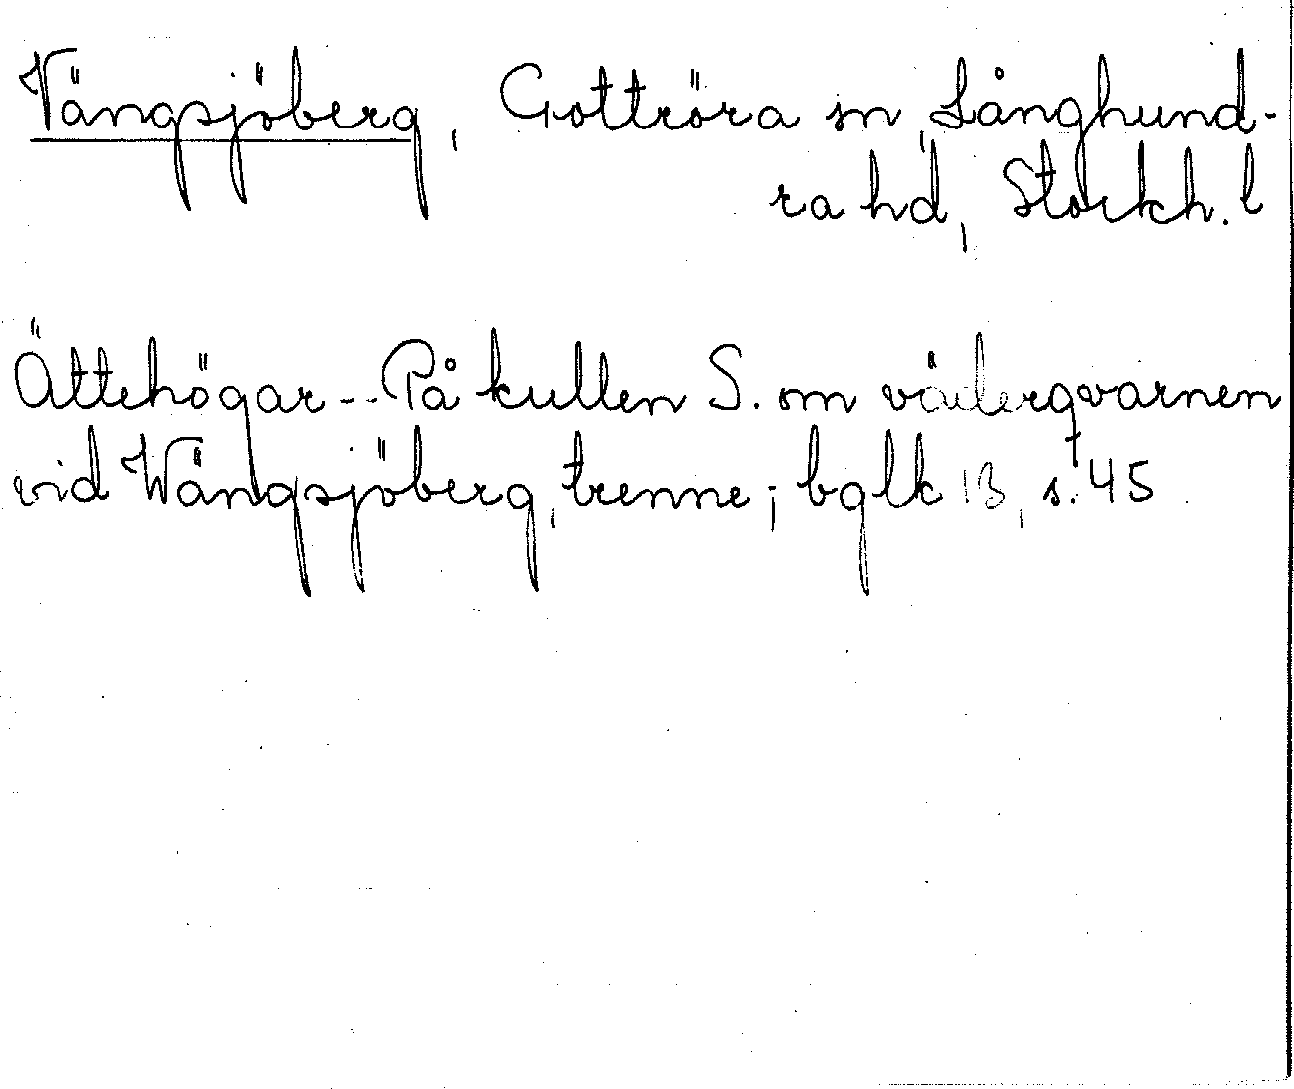 Vängsjöberg, Gottröra sn, Långhund-
ra hd, Stockh. l
Ättehögar -- På kullen S. om väderqvarnen
vid Wängsjöberg, trenne; bglk 13, s. 45